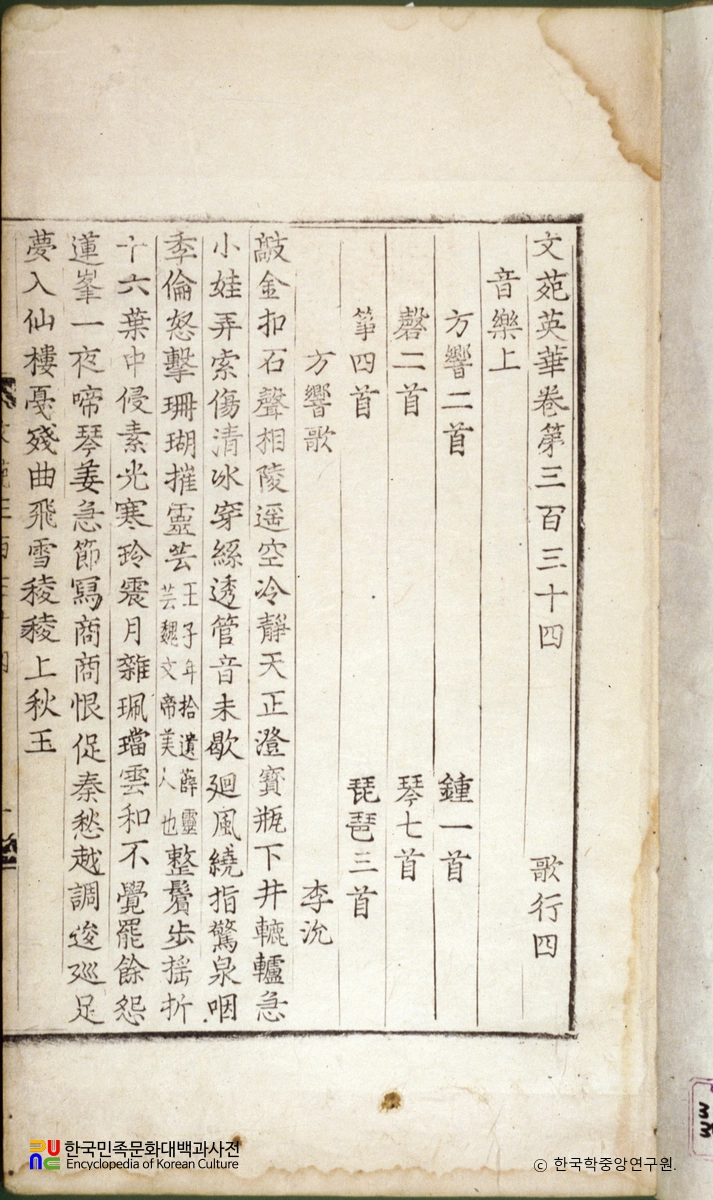 文苑英華卷第三百三十四 歌行四
音樂上
方響二首 鍾一首
磬二首 琴七首
箏四首 琵琶三首
方響歌 李沇
敲金扣石聲相陵遥空冷靜天正澄寳瓶下井轆轤急
小娃弄索傷清冰穿絲透管音未歇廻風繞指驚泉咽
季倫怒擊珊瑚摧靈芸王子年拾遺薛靈芸魏文帝美人也整鬢步搖折
十六葉中侵素光寒玲震月雜珮璫雲和不覺罷餘怨
蓮峯一夜啼琴姜急節冩商商恨促秦愁越調逡巡足
夢入仙樓戞殘曲飛雪稜稜上秋玉
한국민족문화대백과사전
Encyclopedia of Korean Culture
© 한국학중앙연구원.